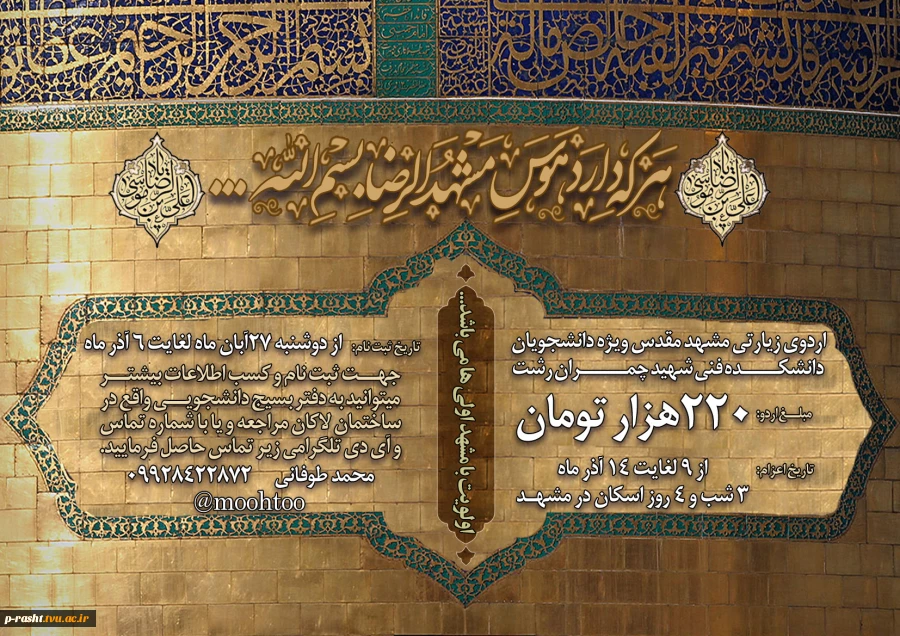 هر که دارد هوس مشهدالرضا بسم الله ...
اردوی زیارتی مشهد مقدس ویژه دانشجویان
دانشکده فنی شهید چمران رشت
مبلغ اردو: ۲۲۰هزار تومان
تاریخ اعزام: از ۹ لغایت ۱۴ آذر ماه
۳ شب و ۴ روز اسکان در مشهد
اولویت با مشهد اولی ها می باشد...
تاریخ ثبت نام: از دوشنبه ۲۷آبان ماه لغایت ۶ آذر ماه
جهت ثبت نام و کسب اطلاعات بیشتر
میتوانید به دفتر بسیج دانشجویی واقع در
ساختمان لاکان مراجعه و یا با شماره تماس
و آی دی تلگرامی زیر تماس حاصل فرمایید.
محمد طوفانی ۰۹۹۲۸۴۲۲۸۷۲
@moohtoo
p-rasht.tvu.ac.ir